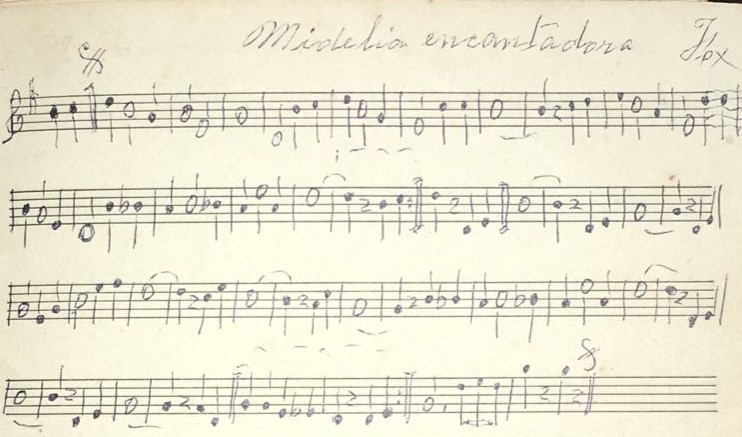 Midelia encantadora Fox